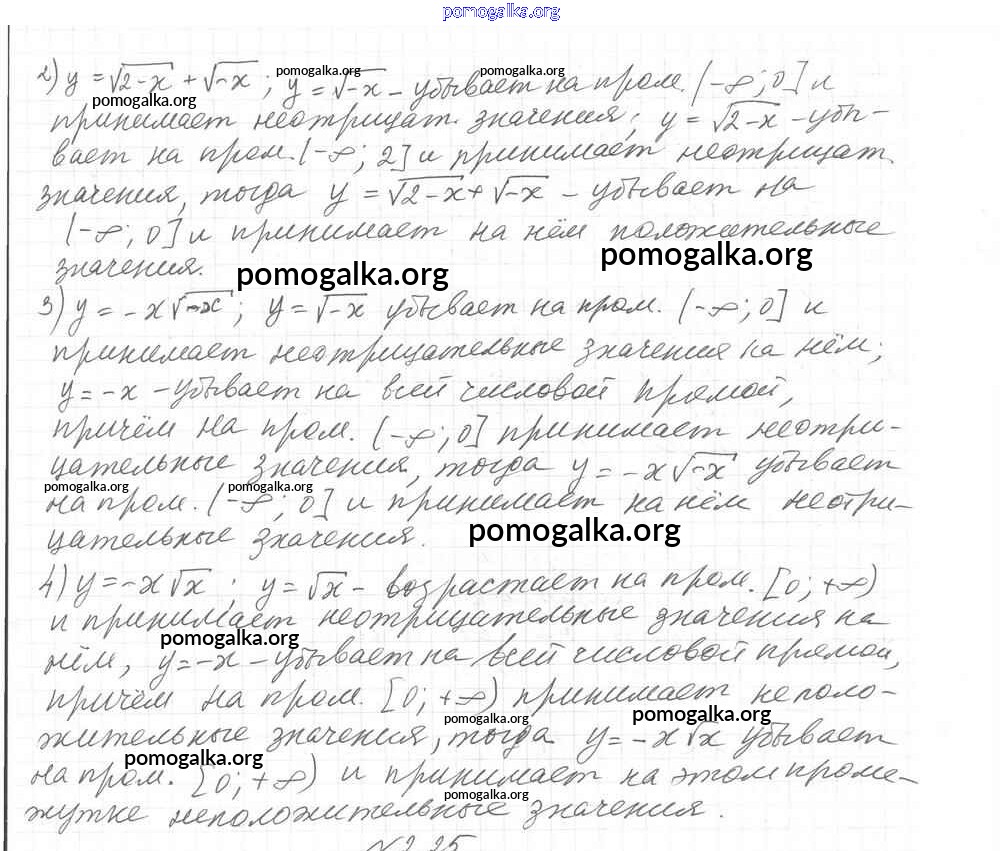 pomogalka.org
2) y = √2-x + √-x ; y = √-x - убывает на пром. (-∞; 0] и
pomogalka.org pomogalka.org pomogalka.org
принимает неотрицат. значения; y = √2-x - убы-
вает на пром. (-∞; 2] и принимает неотрицат.
значения, тогда y = √2-x + √-x - убывает на
(-∞; 0] и принимает на нём положительные
значения.
pomogalka.org pomogalka.org
3) y = -x√-x ; y = √-x убывает на пром. (-∞; 0] и
принимает неотрицательные значения на нём;
y = -x - убывает на всей числовой прямой,
причём на пром. (-∞; 0] принимает неотри-
цательные значения, тогда y = -x√-x убывает
pomogalka.org pomogalka.org
на пром. (-∞; 0] и принимает на нём неотри-
цательные значения.
pomogalka.org
4) y = -x√x ; y = √x - возрастает на пром. [0; +∞)
и принимает неотрицательные значения на
pomogalka.org
нём, y = -x - убывает на всей числовой прямой,
причём на пром. [0; +∞) принимает неполо-
pomogalka.org pomogalka.org
жительные значения, тогда y = -x√x убывает
pomogalka.org
на пром. [0; +∞) и принимает на этом проме-
pomogalka.org
жутке неположительные значения.
№2.25